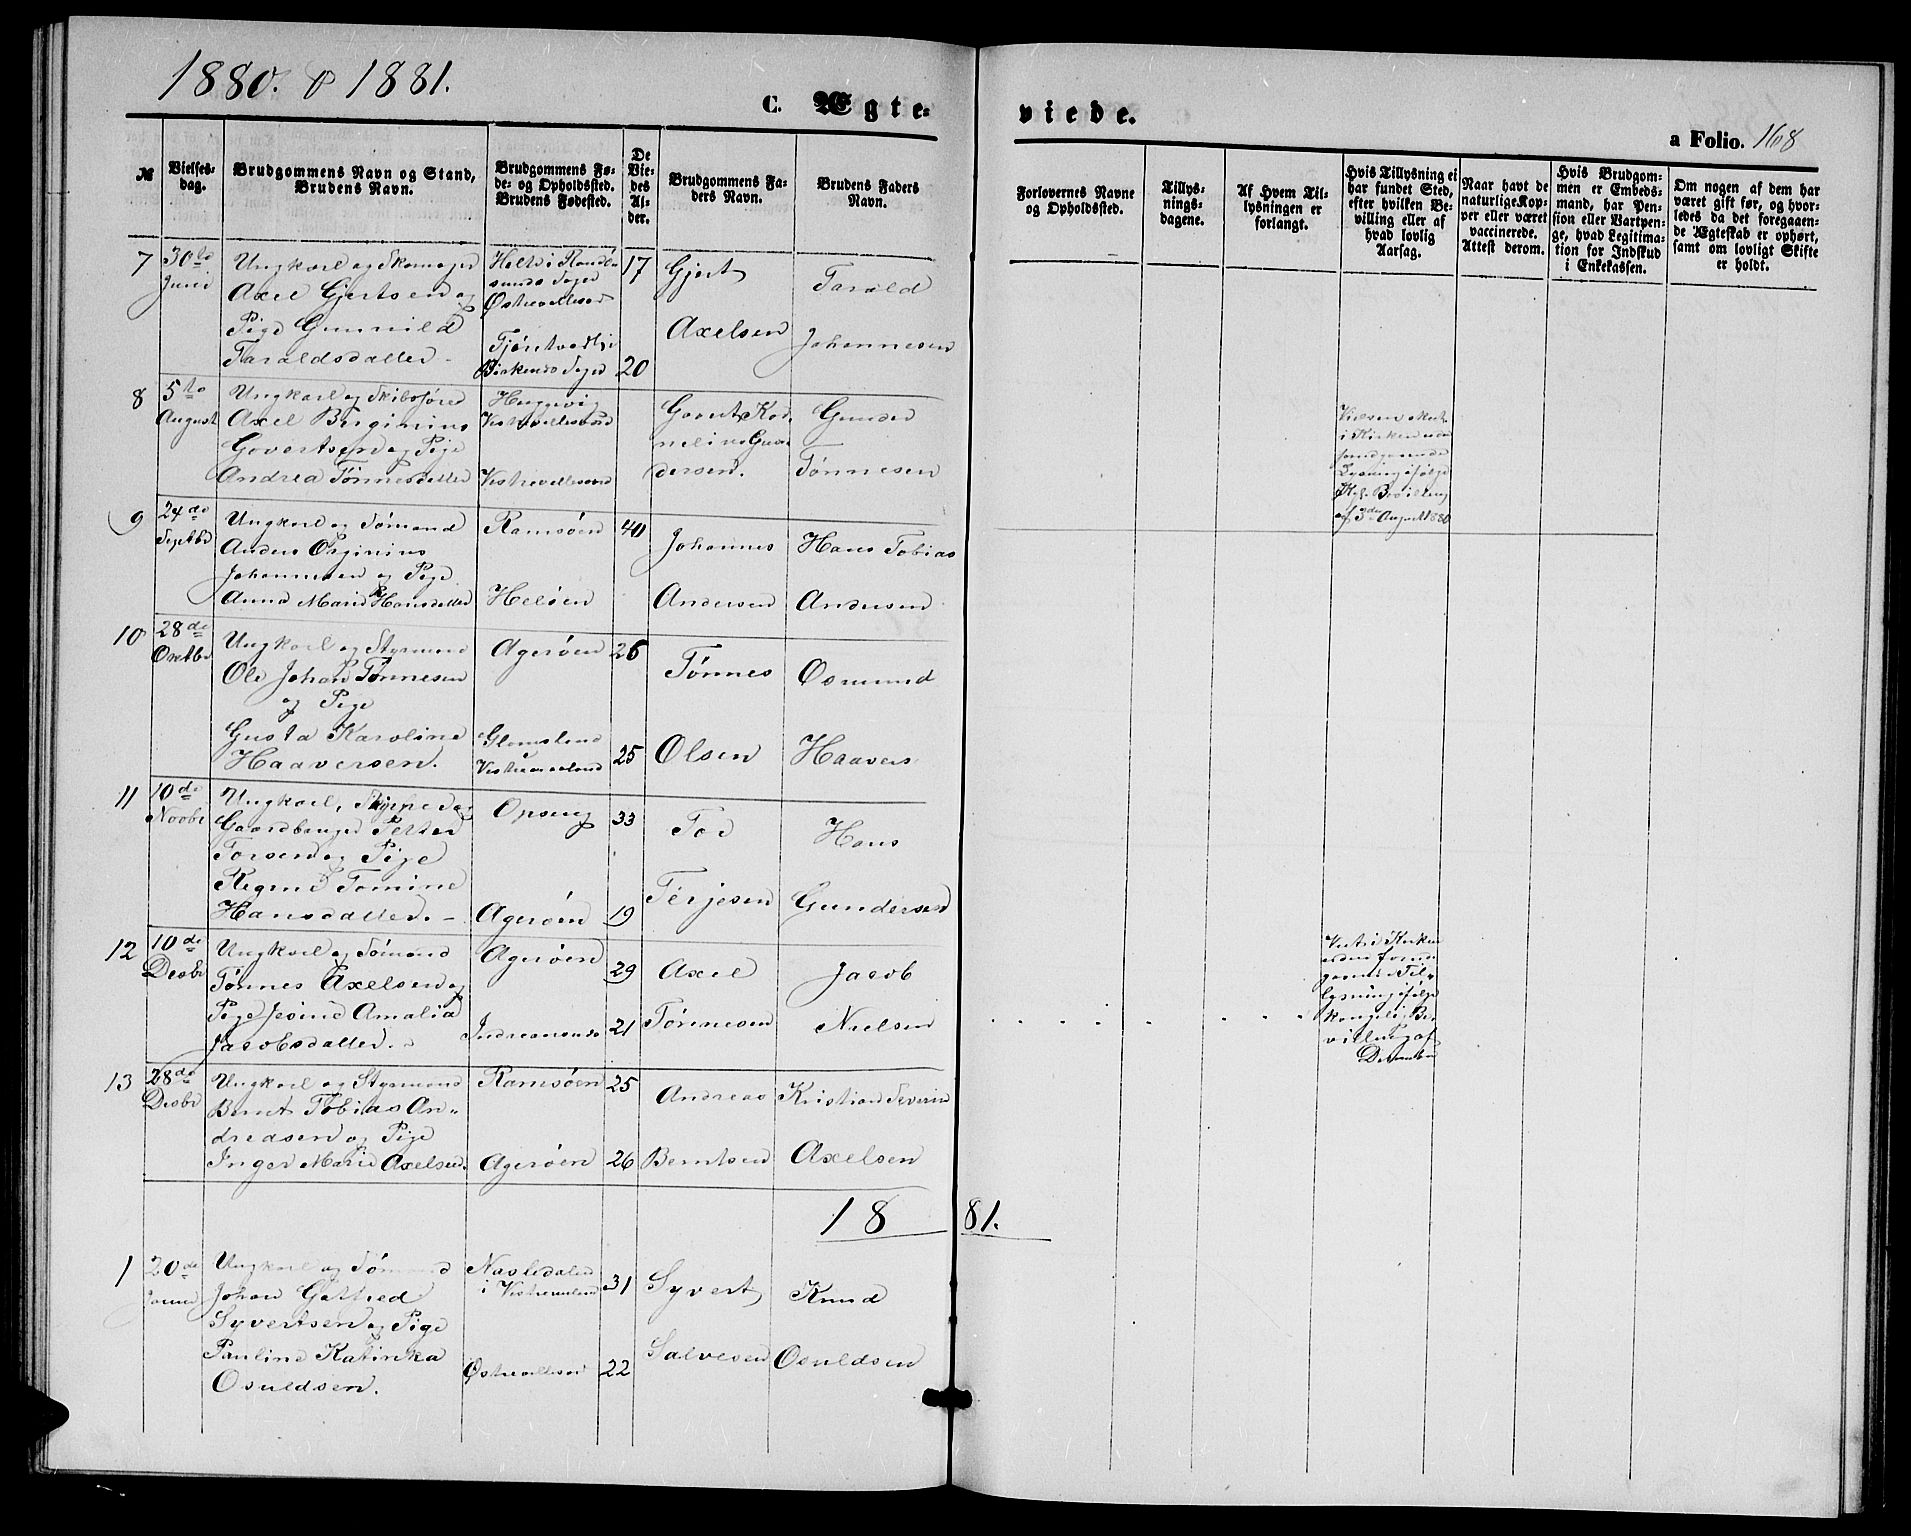 1880. & 1881.
C. Ægte-
viede.
a Folio. 168
№
Vielses-
dag.
Brudgommens Navn og Stand,
Brudens Navn.
Brudgommens Fø-
de- og Opholdssted.
Brudens Fødested.
De
Vie-
des
Al-
der.
Brudgommens Fa-
ders Navn.
Brudens Faders
Navn.
Forlovernes Navne
og Opholdssted.
Tillys-
nings-
dagene.
Af Hvem Til-
lysningen er
forlangt.
Hvis Tillysning ei
har fundet Sted,
efter hvilken Be-
villing eller af
hvad lovlig
Aarsag.
Naar havt de
naturlige Kop-
per eller været
vaccinerede.
Attest derom.
Hvis Brudgom-
men er Embeds-
mand, har Pen-
sion eller Vartpen-
ge, hvad Legitima-
tion for Indskud
i Enkekassen.
Om nogen af dem har
været gift før, og hvor-
ledes da det foregaaen-
de Ægteskab er ophørt,
samt om lovligt Skifte
er holdt.
7
30te
Juni
Ungkarl og Skomager
Axel Gjertsen og
Pige Gunnild
Taraldsdatter -
Holte i Rand-
sunds Sogn
Østrevallesand
i
Birkenes Sogn
17
20
Gjert
Axelsen
Tarald
Johannesen
8
5te
August
Ungkarl og Skibsfører
Axel Berginius
Govertsen og Pige
Andrea Tønnesdatter
Vestrevallesand
Vestrevallesand
Govert Kor-
nelius Gun-
dersen.
Gunder
Tønnesen
i Kirken uden
foregaaende
Lysning ifølge
Kgl. Bevilling
af 3de August 1880
9
24de
Septbr
Ungkarl og Sømand
Anders Berginius
Johannesen og Pige
Anna Marie Hansdatter
Ramsøen
Helsøen
40
Johannes
Andersen
Hans Tobias
Andersen
10
28de
Octbr
Ungkarl og Styrmand
Ole Johan Tønnesen
og Pige
Gusta Karoline
Haaversen.
Agerøen
26
25
Tønnes
Olsen
Osmund
Haavers
11
10de
Novbr
Ungkarl, Skipper og
Gaardbruger Petter
Torsen og Pige
Regine Tomine
Hansdatter. -
Agerøen
33
19
Tor
Terjesen
Hans
Gundersen
12
10de
Decbr
Ungkarl og Sømand
Tønnes Axelsen og
Pige Jesine Amalia
Jacobsdatter. -
Agerøen
29
21
Axel
Tønnesen
Jacob
Nielsen
Viet i Kirken
uden fore-
gaaende Til-
lysning ifølge
kongelig Be-
villing af
December
13
28de
Decbr
Ungkarl og Styrmand
Bernt Tobias An-
dreasen og Pige
Inger Marie Axelsen.
Ramsøen
Agerøen
25
26
Andreas
Berntsen
Kristian Severin
Axelsen
1881.
1
20de
Ungkarl og Sømand
Johan Gotfred
Syvertsen og Pige
Pauline Katinka
Osuldsen.
Østrevallesand
31
22
Syvert
Salvesen
Knud
Osuldsen